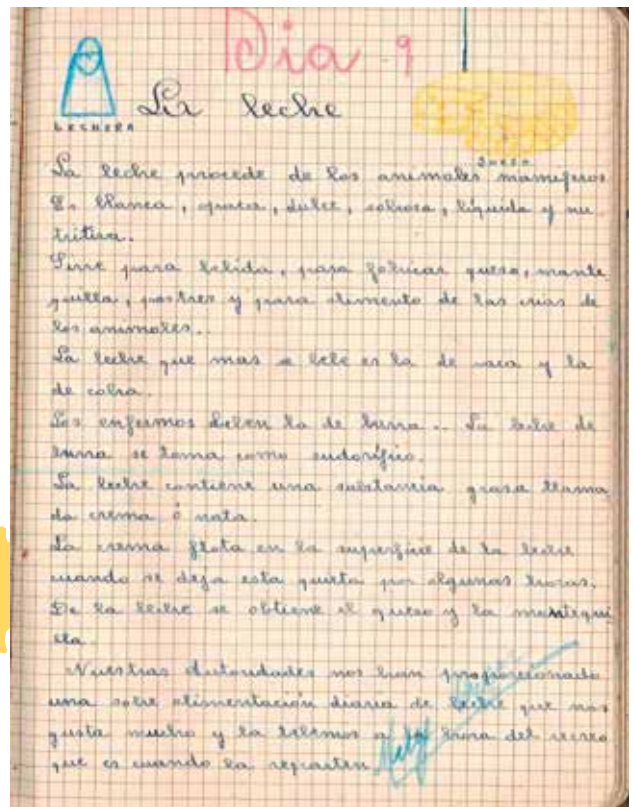 Dia 9
La leche
LECHERA
QUESO
La leche procede de los animales mamiferos
Es blanca, opaca, dulce, sabrosa, líquida y nu
tritiva.
Sirve para bebida, para fabricar queso, mante
quilla, postres y para alimento de las crias de
los animales.
La leche que mas se bebe es la de vaca y la
de cabra.
Los enfermos beben la de burra.. La leche de
burra se toma como sudorífico.
La leche contiene una substancia grasa llama
da crema ó nata.
La crema flota en la superficie de la leche
cuando se deja esta quieta por algunas horas.
De la leche se obtiene el queso y la mantequi
lla.
Nuestras Autoridades nos han proporcionado
una sobre alimentación diaria de leche que nos
gusta mucho y la bebemos a la hora del recreo
que es cuando la reparten